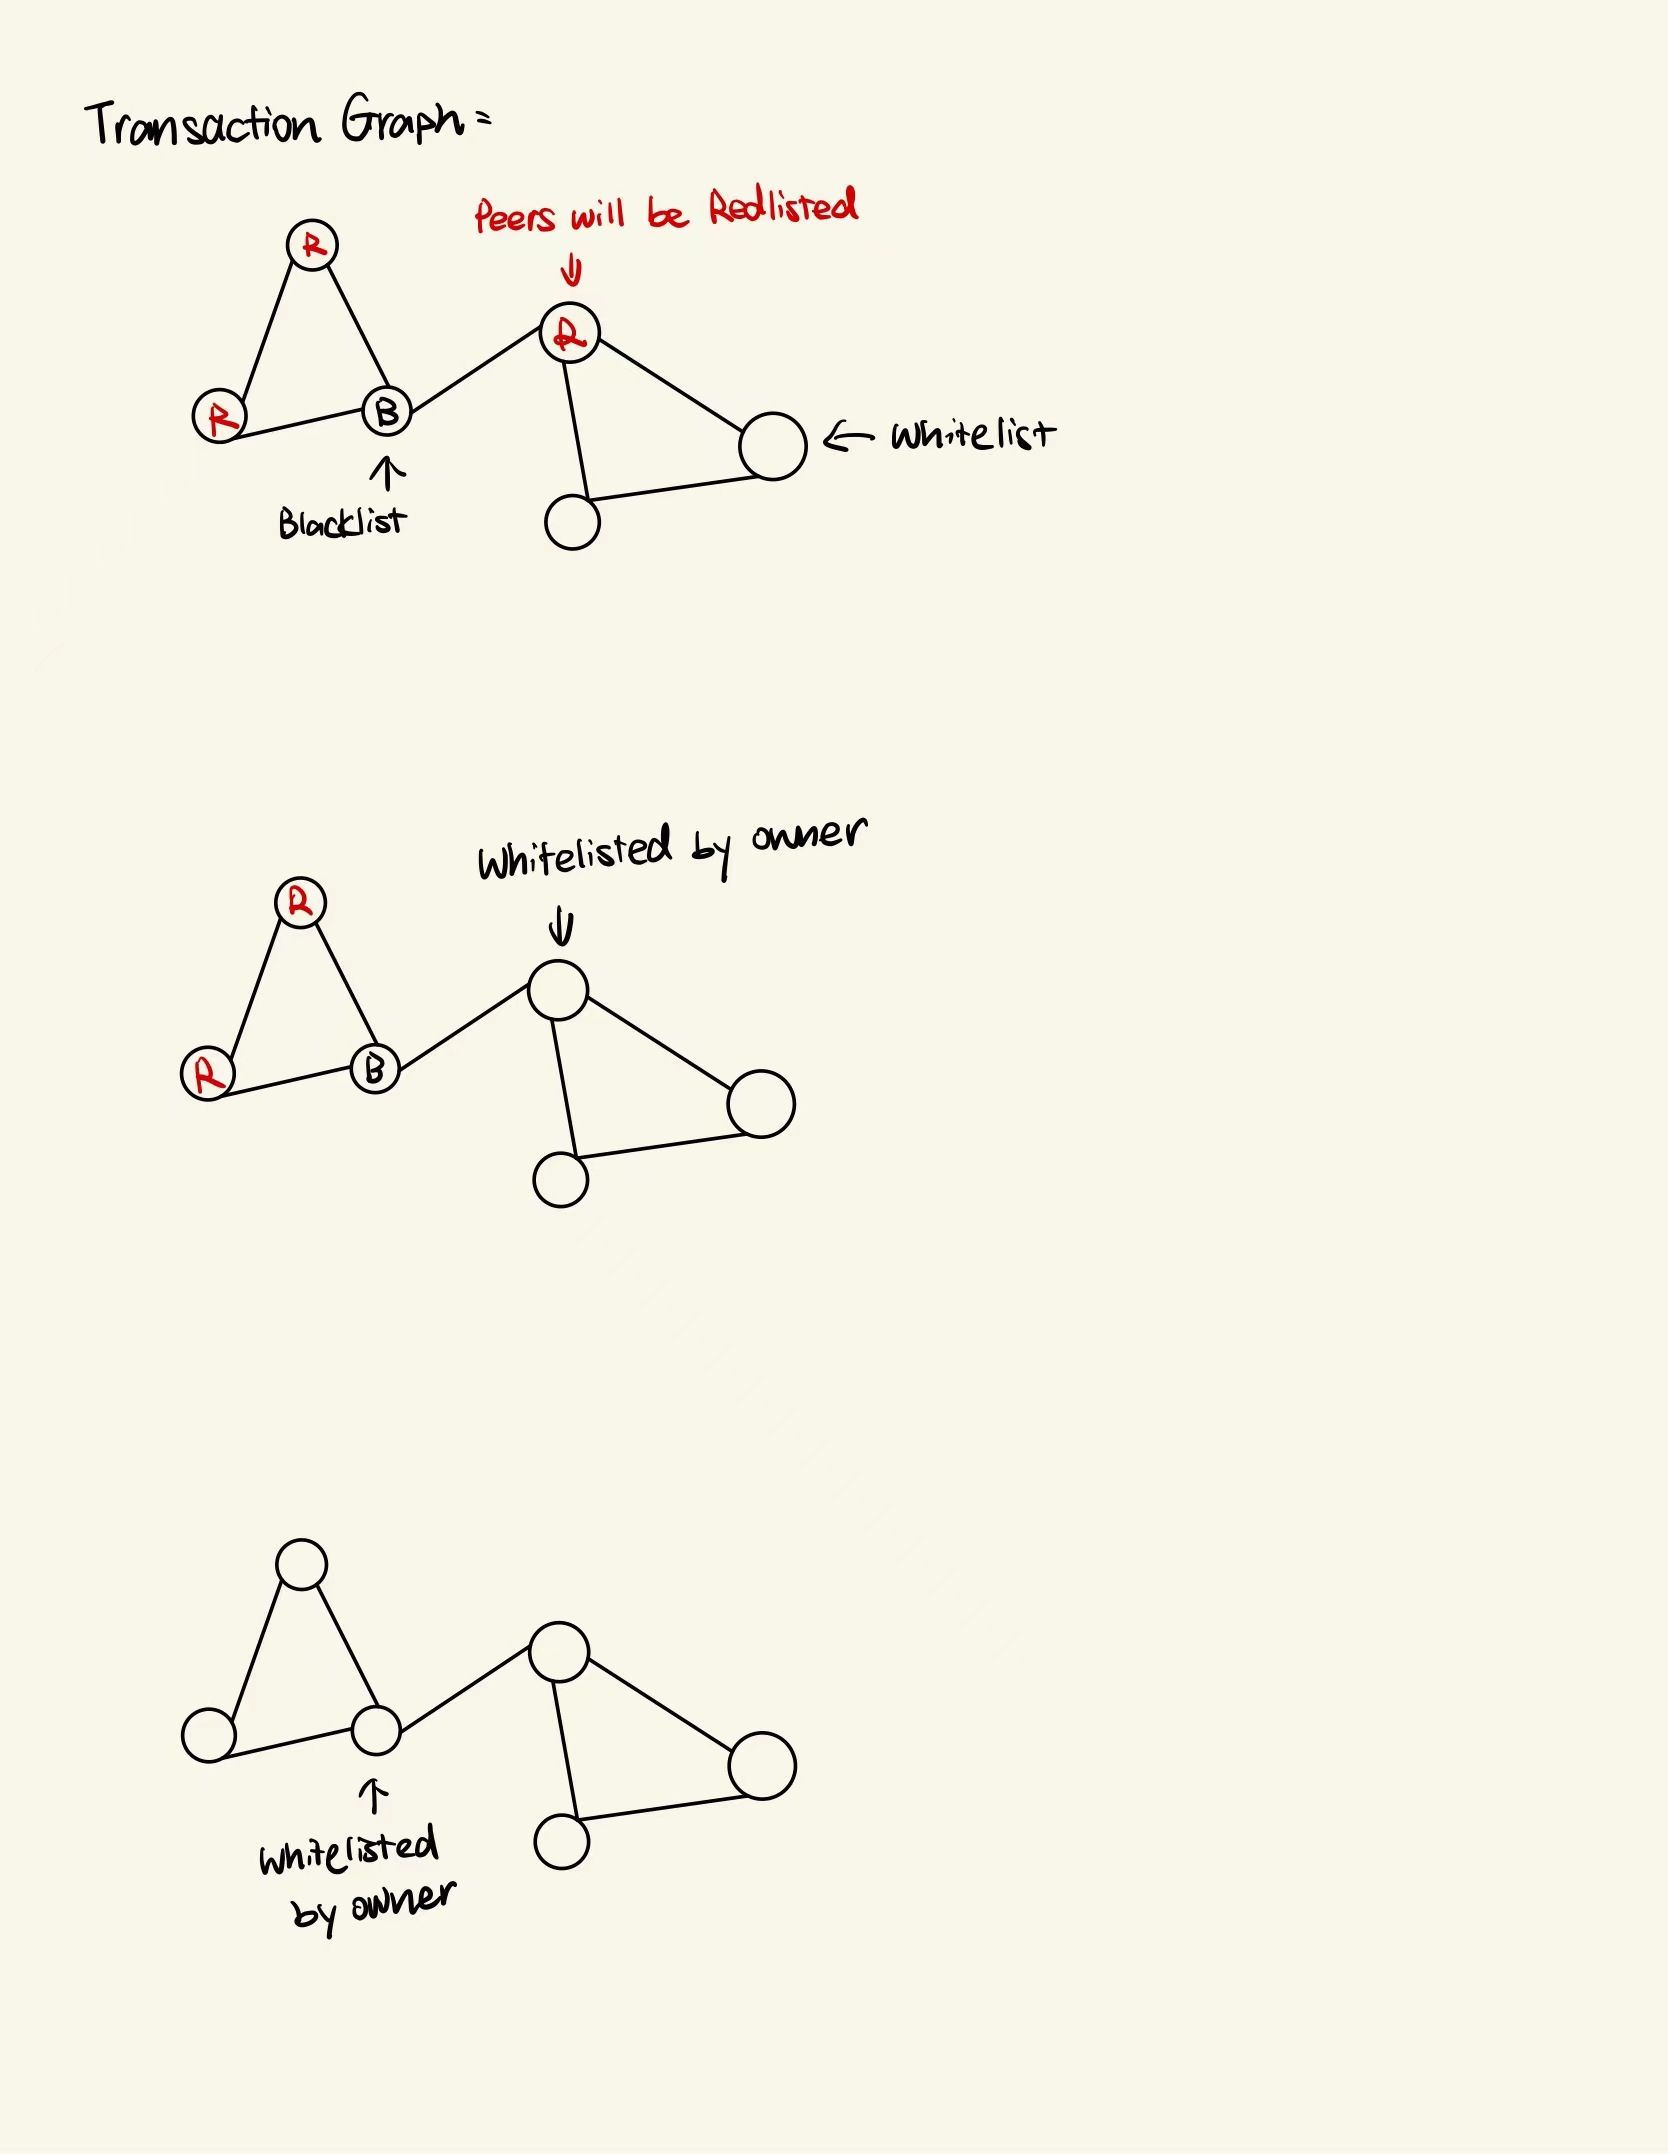 Transaction Graph =
Peers will be Redlisted
R
R
R
B
Whitelist
Blacklist
Whitelisted by owner
R
R
B
Whitelisted
by owner